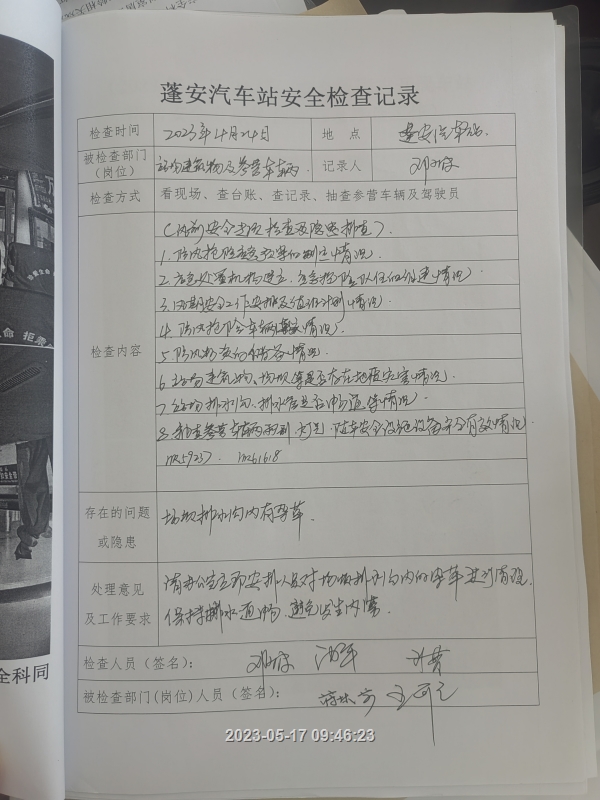 蓬安汽车站安全检查记录
检查时间 2023年4月24日 地 点 蓬安汽车站
被检查部门(岗位) 站场建筑物及参营车辆 记录人
检查方式 看现场、查台账、查记录、抽查参营车辆及驾驶员
检查内容
(汛前安全专项检查及隐患排查)
1.防汛抢险应急预案的制定情况.
2.应急处置机构建立,应急抢险队伍的组建情况.
3.汛期安全工作安排及值班计划情况.
4.防汛抢险车辆情况.
5.防汛物资的储备情况.
6.站场建筑物、场坝等是否存在地质灾害情况.
7.站场排水沟、排水管是否畅通等情况.
8.抽查参营车辆雨刮、灯光、随车安全设施设备安全有效情况.
存在的问题或隐患
场坝排水沟内有杂草.
处理意见及工作要求
请办公室立即安排人员对场坝排水沟内的杂草进行清理,
保持排水通畅,避免发生内涝.
检查人员(签名):
被检查部门(岗位)人员(签名):
2023-05-17 09:46:23
全科同